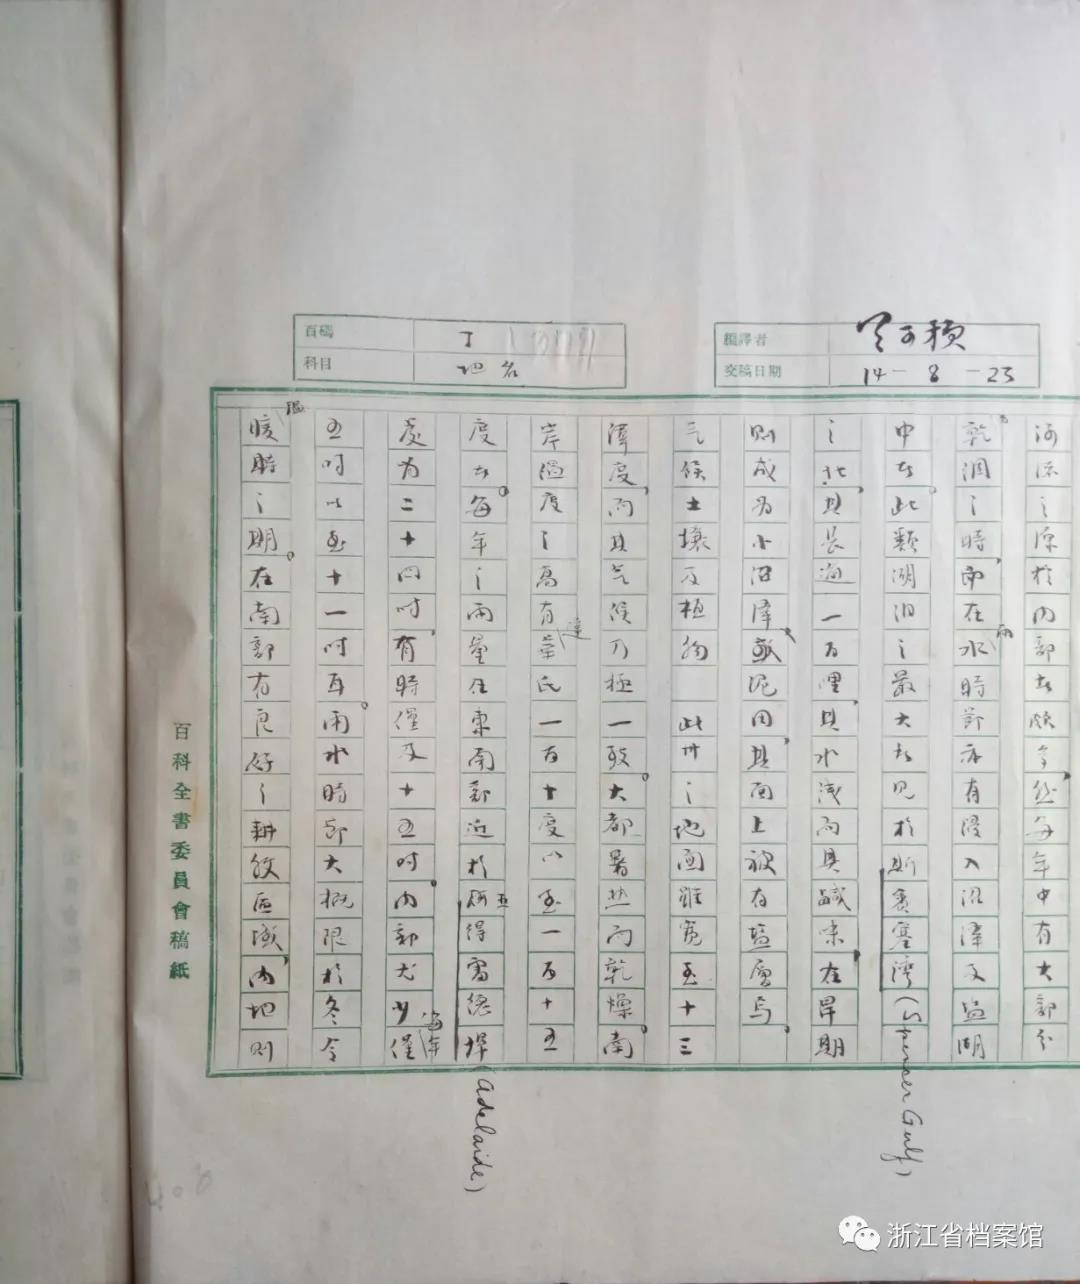 頁碼 丁
科目 地名
編譯者 竺可楨
交稿日期 14-8-23
河流之源於內部者頗多，然每年中有大部分
乾涸之時，而在雨水時節亦有浸入沼澤及鹽湖
中者。此類湖泊之最大者見於斯賓塞灣(Spencer Gulf)
之北，其長逾一百哩，其水淺而具鹹味，在旱期
則成為小沼澤，泥因其面上被有鹽層焉。
氣候土壤及植物 此州之地面雖寬至十三
緯度，而其氣候乃極一致。大都暑熱而乾燥。南
岸溫度之高有達華氏一百十度以至一百十五
度者。每年之雨量在東南部近於阿得雷德埠(Adelaide)
處為二十四吋，有時僅及十五吋，內部尤少，每年僅
五吋以至十一吋耳。雨水時節大概限於冬令
溫暖時之期。在南部有良好之耕牧區域，內地則
百科全書委員會稿紙
浙江省档案馆